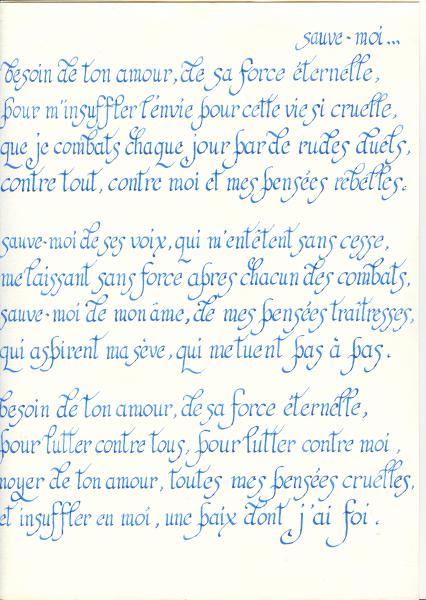 sauve-moi...
besoin de ton amour, de sa force éternelle,
pour m'insuffler l'envie pour cette vie si cruelle,
que je combats chaque jour par de rudes duels,
contre tout, contre moi et mes pensées rebelles.
sauve-moi de ses voix, qui m'entêtent sans cesse,
me laissant sans force apres chacun des combats,
sauve-moi de mon âme, de mes pensées traîtresses,
qui aspirent ma sève, qui me tuent pas à pas.
besoin de ton amour, de sa force éternelle,
pour lutter contre tous, pour lutter contre moi,
noyer de ton amour, toutes mes pensées cruelles,
et insuffler en moi, une paix dont j'ai foi.